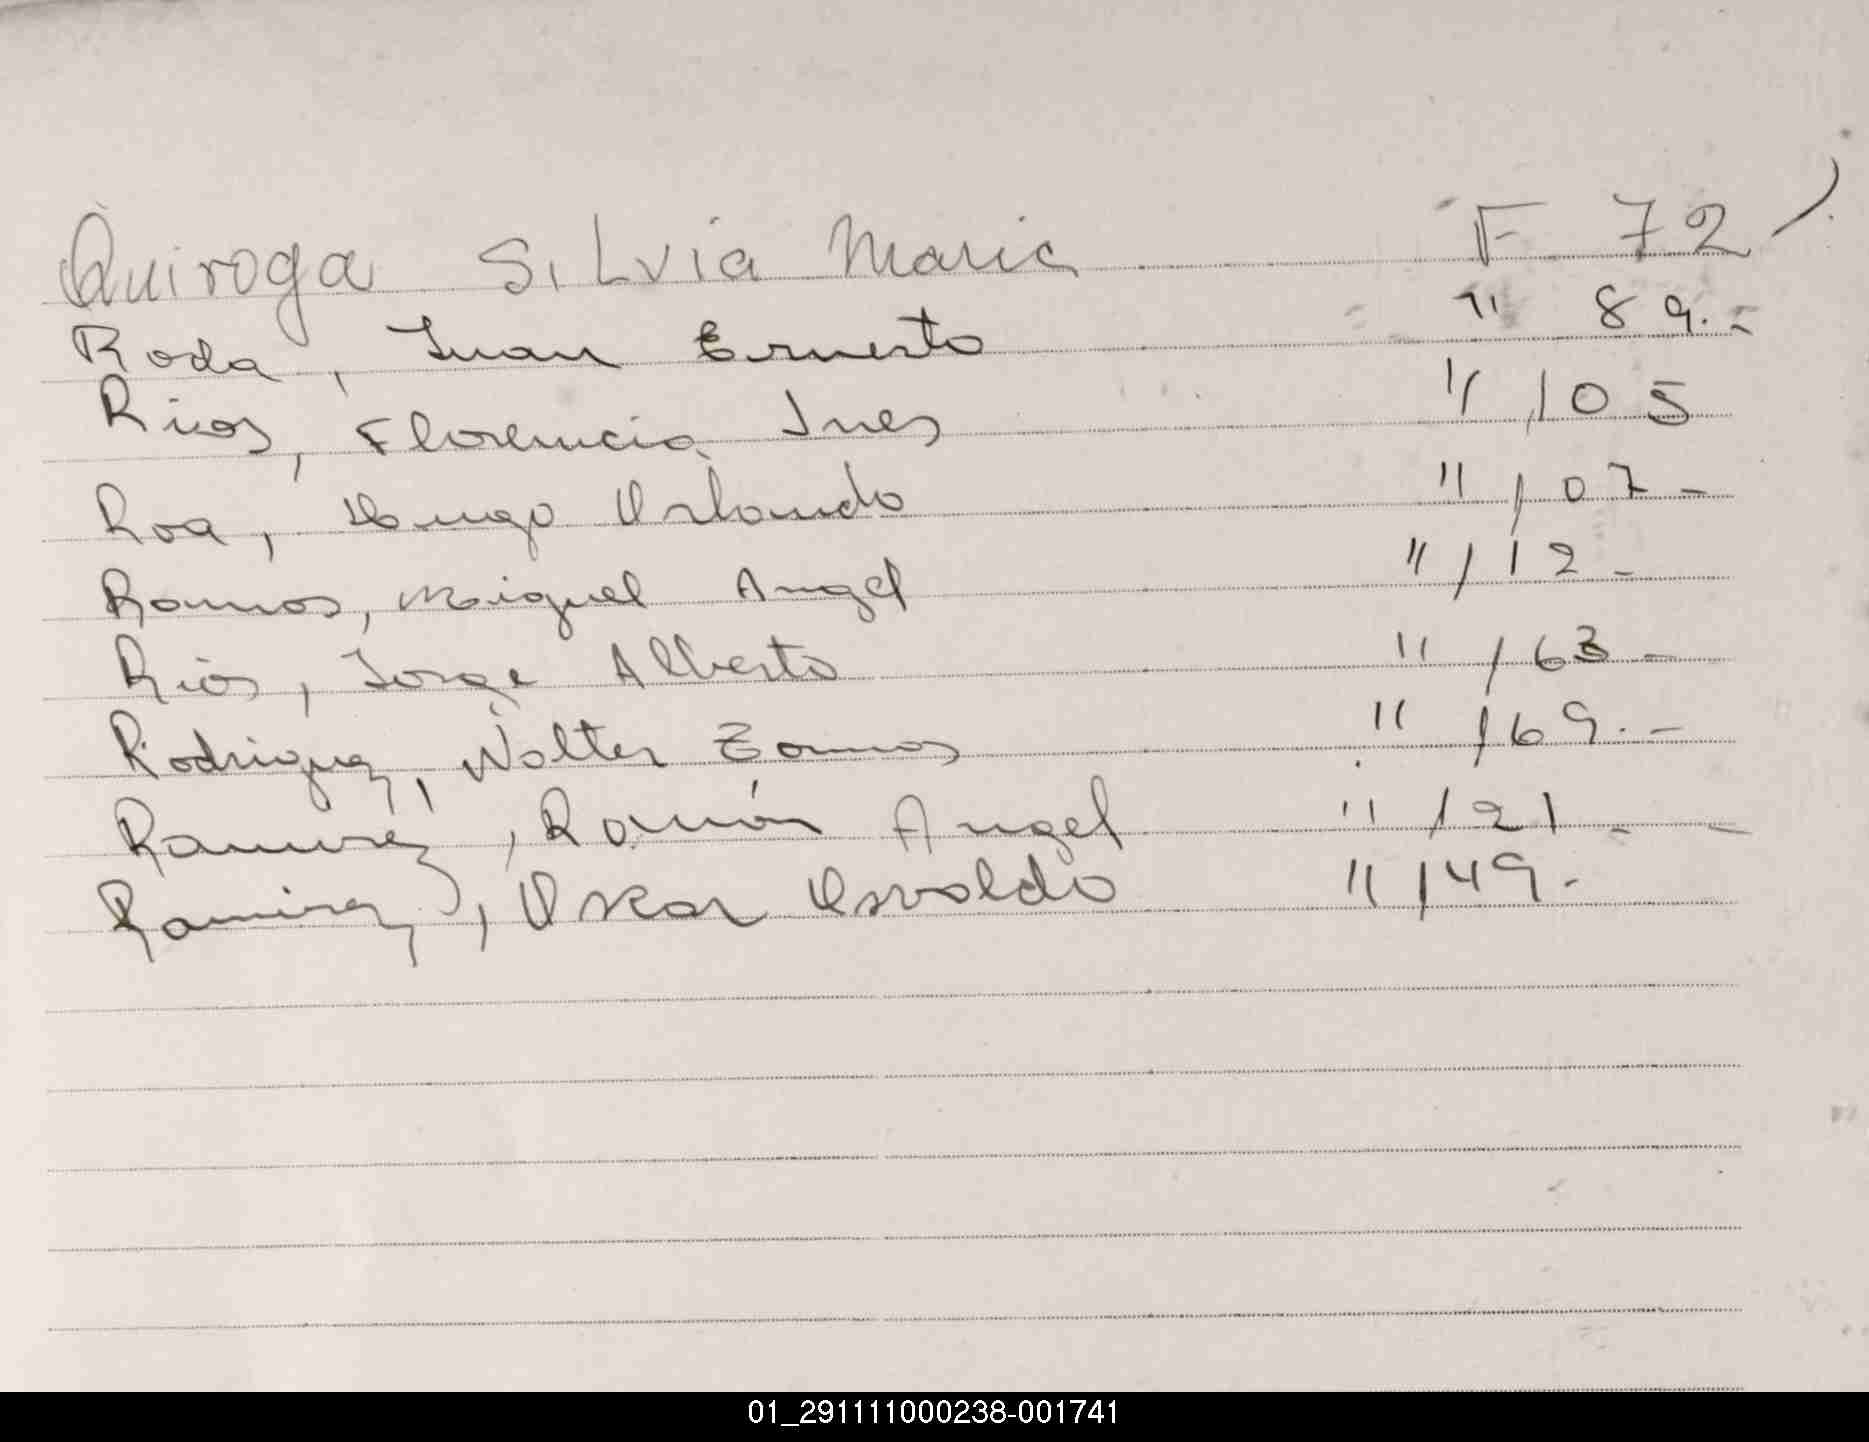 Quiroga Silvia Maria F 72
Roda, Juan Ernesto " 89.-
Rios, Florencia Ines " 105
Roa, Hugo Orlando " 107-
Ramos, Miguel Angel " 112-
Rios, Jorge Alberto " 163-
Rodriguez, Walter " 169.-
Ramirez, Ramón Angel " 121.-
Ramirez, Oskar Osvaldo " 149.-
01_291111000238-001741